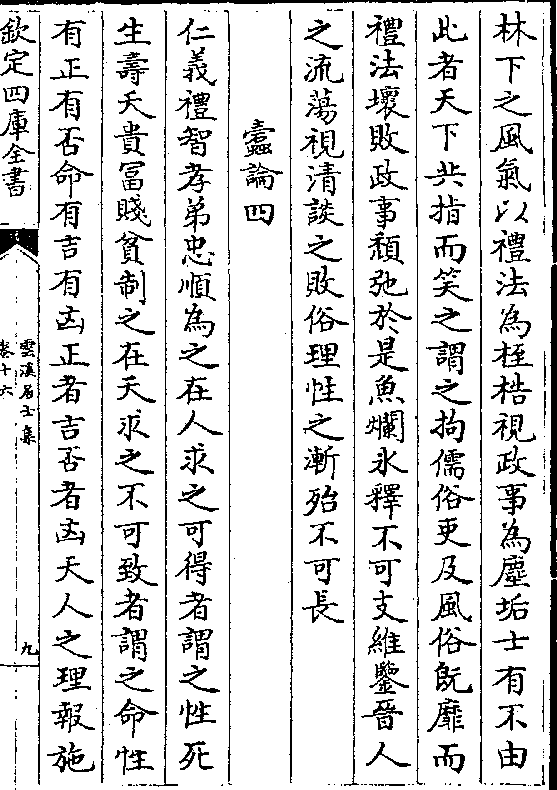 林下之風氣以禮法為桎梏視政事為塵垢士有不由
此者天下共指而笑之謂之拘儒俗吏及風俗既靡而
禮法壞敗政事頹弛於是魚爛氷釋不可支維鑒晉人
之流蕩視清談之敗俗理性之漸殆不可長
蠧論四
仁義禮智孝弟忠順為之在人求之可得者謂之性死
生壽夭貴冨賤貧制之在天求之不可致者謂之命性
有正有否命有吉有凶正者吉否者凶天人之理報施
欽定四庫全書
雲溪居士集
卷十六
九